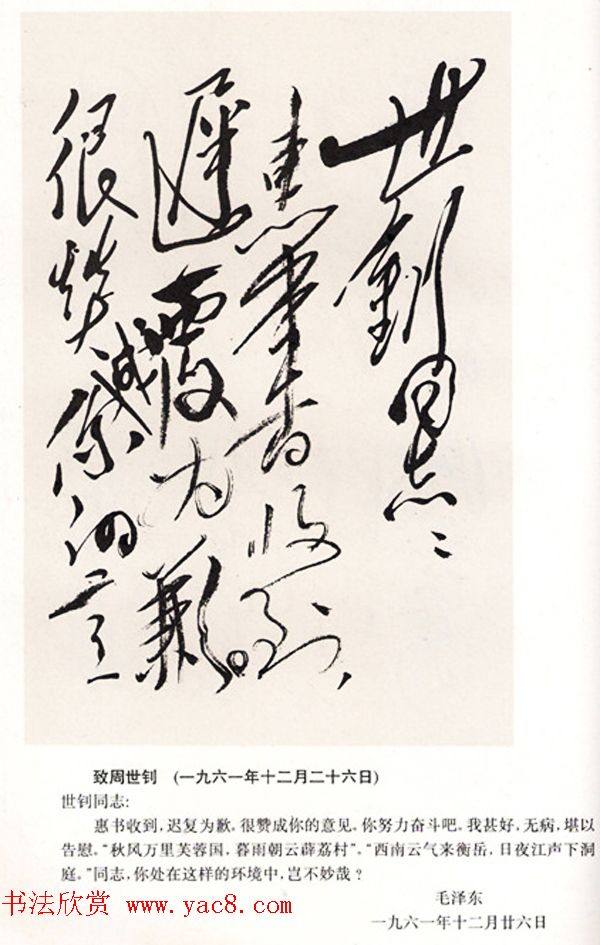 世釗同志：
惠書收到，
遲覆为歉。
很赞成你的意
致周世钊 （一九六一年十二月二十六日）
世钊同志：
惠书收到，迟复为歉。很赞成你的意见。你努力奋斗吧。我甚好，无病，堪以
告慰。“秋风万里芙蓉国，暮雨朝云薜荔村”。“西南云气来衡岳，日夜江声下洞
庭。”同志，你处在这样的环境中，岂不妙哉？
毛泽东
一九六一年十二月廿六日
书法欣赏 www.yac8.com